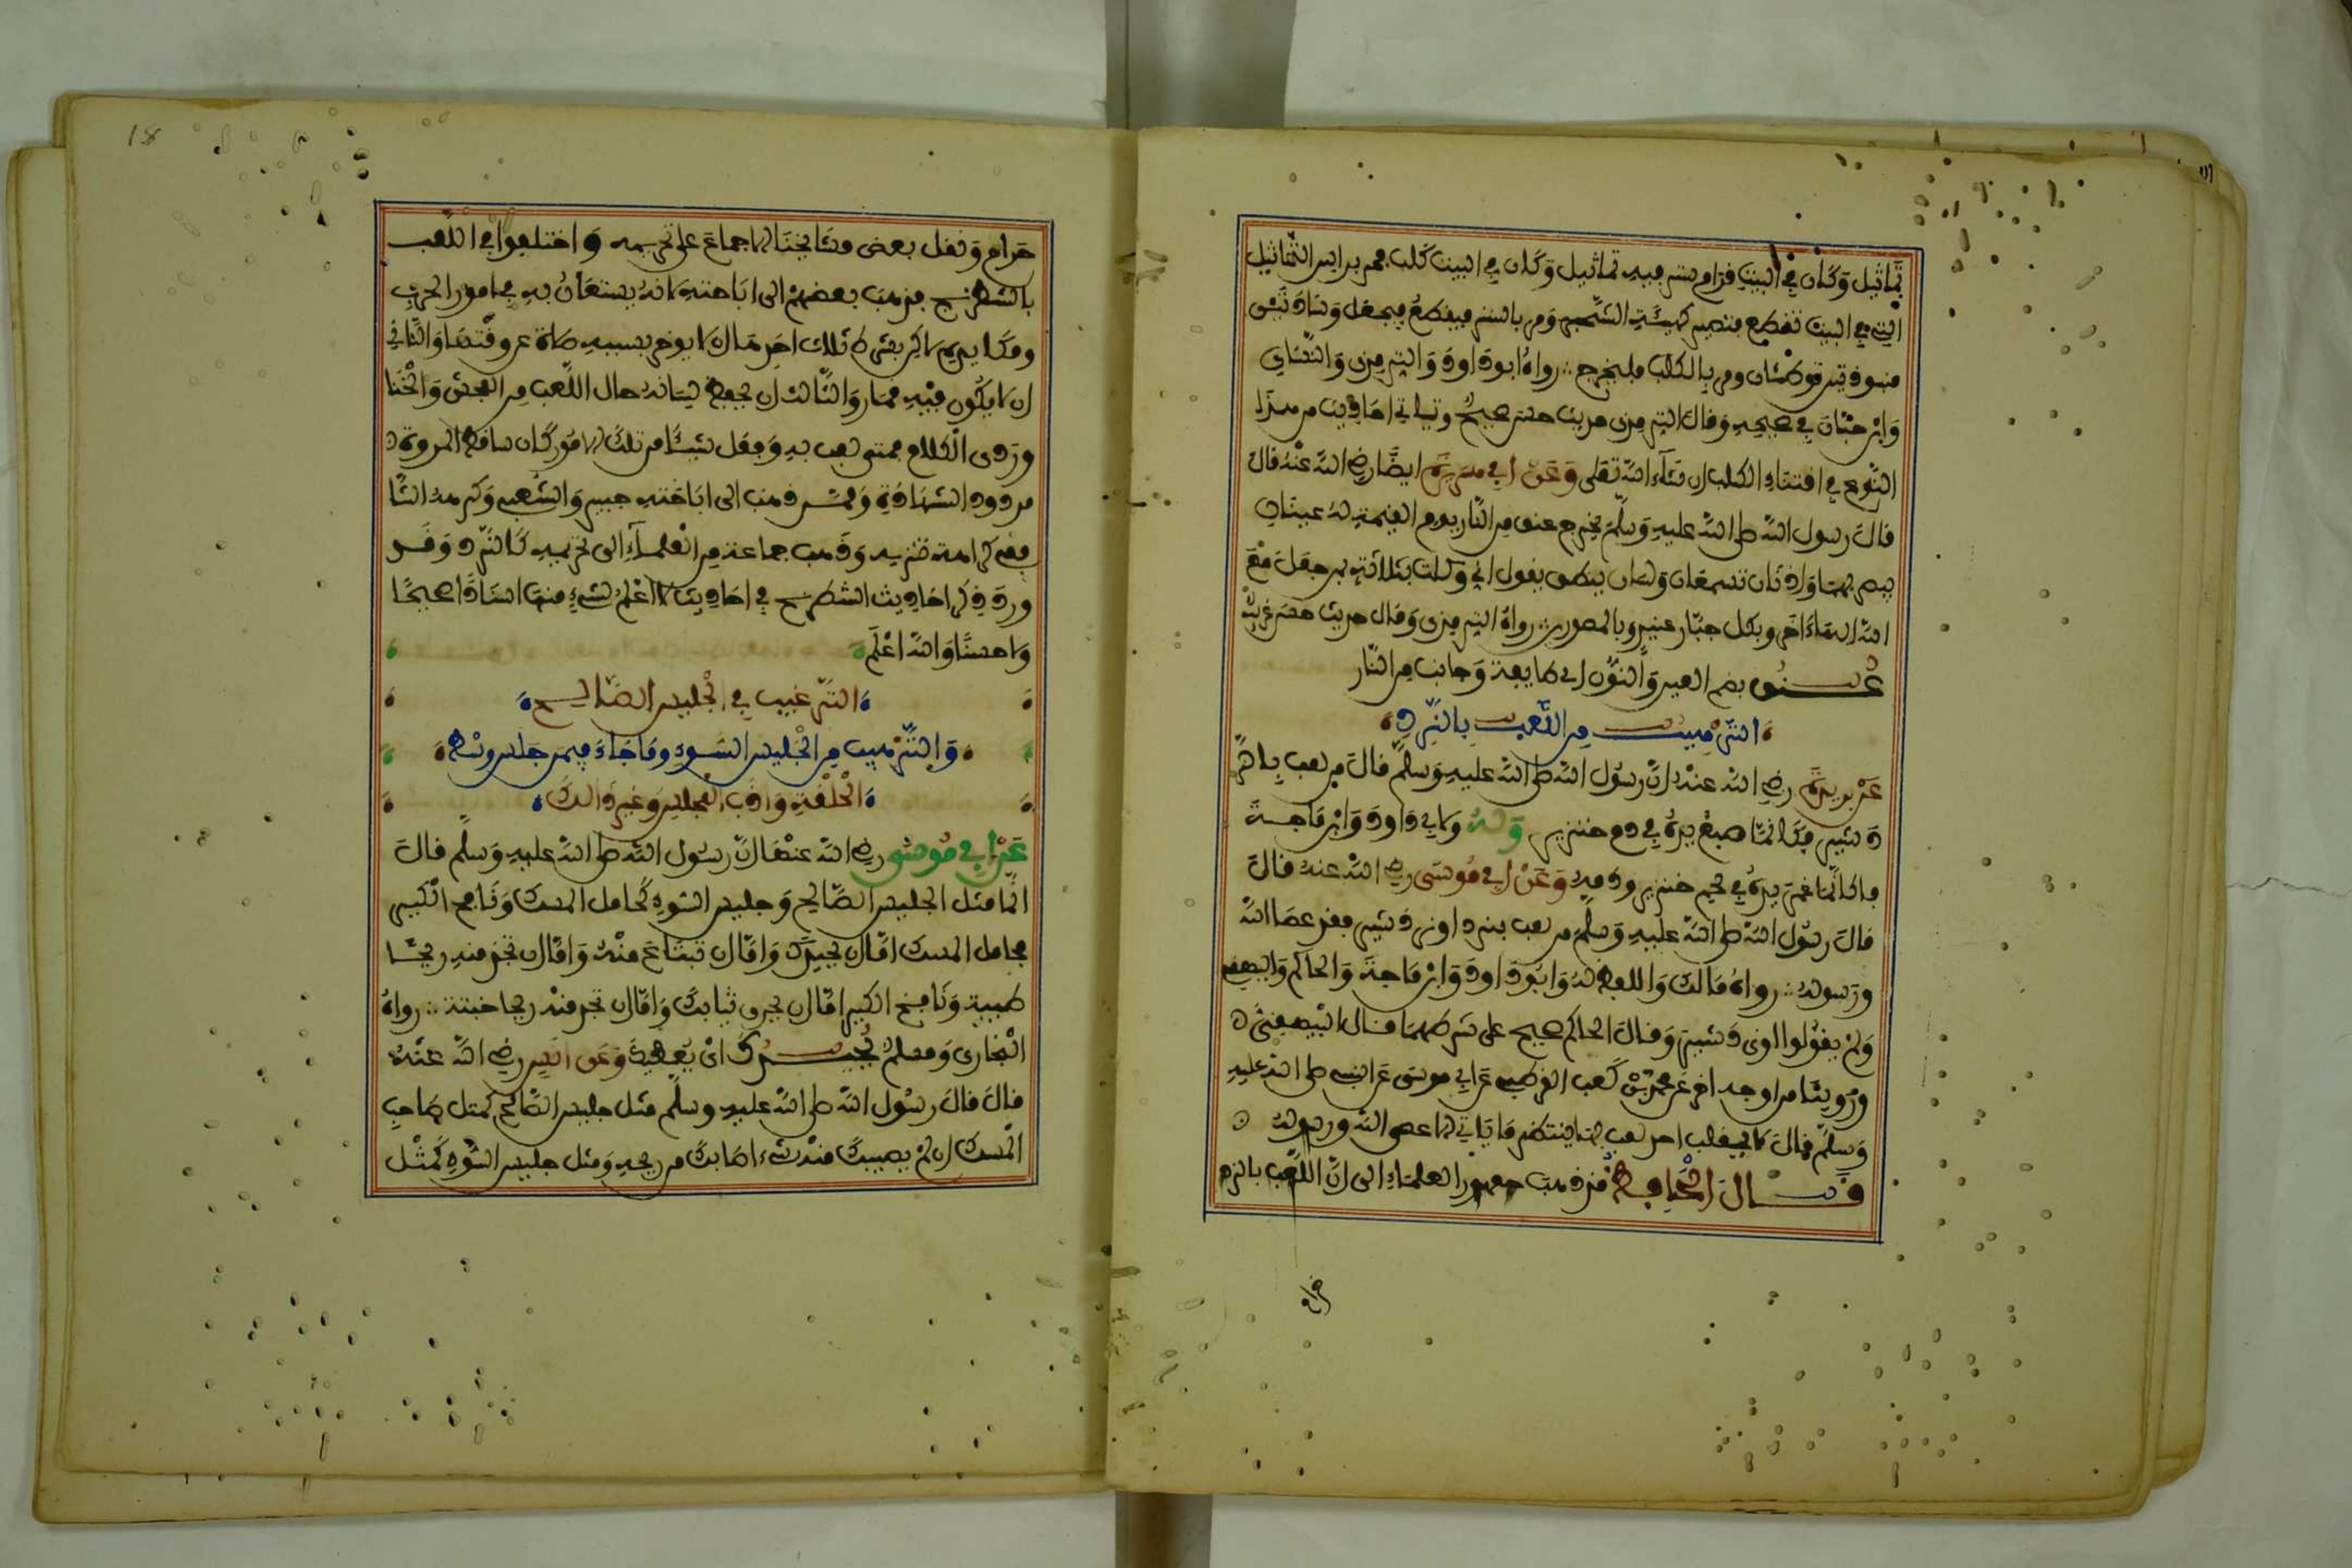 تماثيل وكان في البيت قرام ستر فيه تماثيل وكان في البيت كلب فمر براس التماثيل
التي في البيت تقطع فتصير كهيئة الشجرة ومر بالستر فيقطع فيجعل وسادتين
منبوذتين توطئان ومر بالكلب فليخرج رواه ابو داود والترمذي والنسائي
وابن حبان في صحيحه وقال الترمذي حديث حسن صحيح وتاتي احاديث من هذا
النوع في اقتناء الكلب ان شاء الله تعلى وعن ابي هريرة ايضا رضي الله عنه قال
قال رسول الله صلى الله عليه وسلم يخرج عنق من النار يوم القيمة له عينان
يبصر بهما واذنان تسمعان ولسان ينطق يقول اني وكلت بثلاثة بمن جعل مع
الله الها اخر وبكل جبار عنيد وبالمصورين رواه الترمذي وقال حديث حسن غريب
عنق بضم العين والنون اي طايفة وجانب من النار
الترهيب من اللعب بالنرد
عن بريدة رضي الله عنه ان رسول الله صلى الله عليه وسلم قال من لعب بالنرد
شير فكانما صبغ يده في دم خنزير وله ولابي داود وابن ماجة
فكانما غمس يده في لحم خنزير ودمه وعن ابي موسى رضي الله عنه قال
قال رسول الله صلى الله عليه وسلم من لعب بنرد او نردشير فقد عصا الله
ورسوله رواه مالك واللفظ له وابو داود وابن ماجة والحاكم والبيهقي
ولم يقولوا او نردشير وقال الحاكم صحيح على شرطهما قال البيهقي
وروينا من اوجه اخر عن محمد بن كعب القرظي عن ابي موسى عن النبي صلى الله عليه
وسلم قال لا يقلب احد لعب بها ينتظر ما ياتي الا عصى الله ورسوله
قال الحافظ قد ذهب جمهور العلماء الى ان اللعب بالنرد
حرام
حرام ونقل بعض مشايخنا الاجماع على تحريمه واختلفوا في اللعب
بالشطرنج فذهب بعضهم الى اباحته لانه يستعان به في امور الحرب
ومكايده لاكن بشروط ثلاث احدها ان لا يوخر بسببه صلاة عن وقتها والثاني
ان لا يكون فيه قمار والثالث ان يحفظ لسانه حال اللعب من الفحش والخنا
وردي الكلام فمتى لعب به وفعل شيئا من تلك الامور كان ساقط المروة
مردود الشهادة وممن ذهب الى اباحته سعيد بن جبير والشعبي وكرهه الشا
فعي كراهة تنزيه وذهب جماعة من العلماء الى تحريمه كالنرد وقد
ورد ذكر الشطرنج في احاديث لا اعلم لشيء منها اسنادا صحيحا
ولا حسنا والله اعلم
الترغيب في الجليس الصالح
والترهيب من الجليس السوء وما جاء فيمن جلس وسط
الحلقة وادب المجلس وغير ذالك
عن ابي موسى رضي الله عنه ان رسول الله صلى الله عليه وسلم قال
انما مثل الجليس الصالح وجليس السوء كحامل المسك ونافخ الكير
فحامل المسك اما ان يحذيك واما ان تبتاع منه واما ان تجد منه ريحا
طيبة ونافخ الكير اما ان يحرق ثيابك واما ان تجد منه ريحا خبيثة رواه
البخاري ومسلم يحذيك اي يعطيك وعن انس رضي الله عنه
قال قال رسول الله صلى الله عليه وسلم مثل جليس الصالح كمثل صاحب
المسك ان لم يصيبك منه شيء اصابك من ريحه ومثل جليس السوء كمثل
18